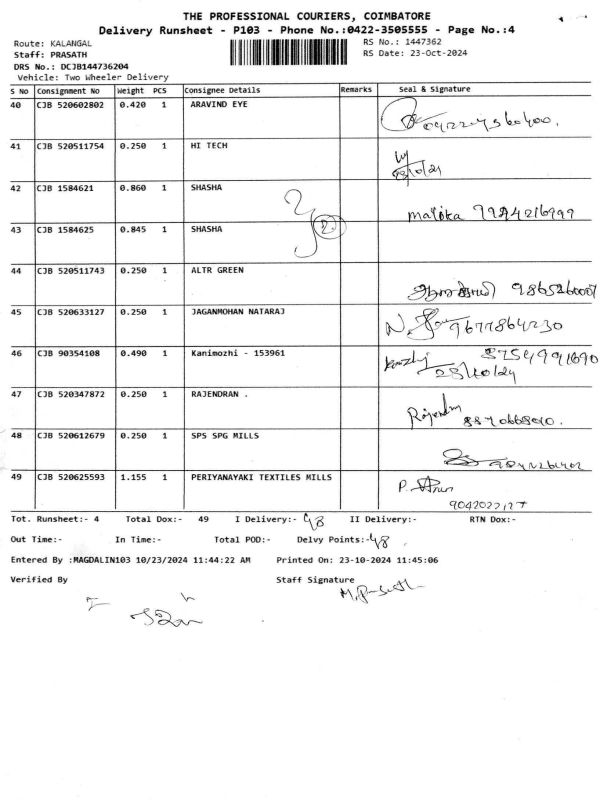 THE PROFESSIONAL COURIERS, COIMBATORE
Delivery Runsheet - P103 - Phone No.:0422-3505555 - Page No.:4
Route: KALANGAL
RS No.: 1447362
Staff: PRASATH
RS Date: 23-Oct-2024
DRS No.: DCJB144736204
Vehicle: Two Wheeler Delivery
S No Consignment No Weight PCS Consignee Details Remarks Seal & Signature
40 CJB 520602802 0.420 1 ARAVIND EYE
41 CJB 520511754 0.250 1 HI TECH
23/10/24
42 CJB 1584621 0.860 1 SHASHA
2
43 CJB 1584625 0.845 1 SHASHA
44 CJB 520511743 0.250 1 ALTR GREEN
45 CJB 520633127 0.250 1 JAGANMOHAN NATARAJ
9677864230
46 CJB 90354108 0.490 1 Kanimozhi - 153961
8754991690
23/10/24
47 CJB 520347872 0.250 1 RAJENDRAN .
Rajendran
48 CJB 520612679 0.250 1 SPS SPG MILLS
49 CJB 520625593 1.155 1 PERIYANAYAKI TEXTILES MILLS
P.
9042022127
Tot. Runsheet:- 4 Total Dox:- 49 I Delivery:- 48 II Delivery:- RTN Dox:-
Out Time:- In Time:- Total POD:- Delvy Points:- 48
Entered By :MAGDALIN103 10/23/2024 11:44:22 AM Printed On: 23-10-2024 11:45:06
Verified By Staff Signature
M.Prasath